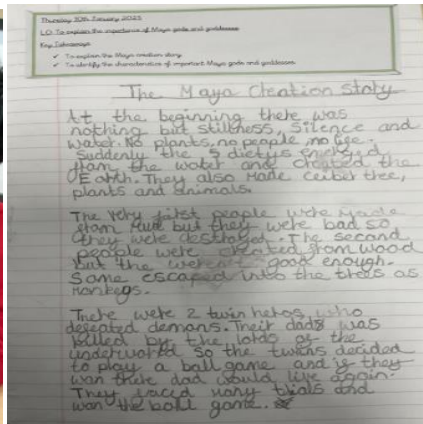 Thursday 30th January 2025
LO: To explain the importance of Maya gods and goddesses
Key Takeaways
✓ To explain the Maya creation story
✓ To identify the characteristics of important Maya gods and goddesses
The Maya Creation Story
At the beginning there was
nothing but stillness, silence and
water. No plants, no people, no
Suddenly the 5 dietys emerged
from the water and created the
Earth. They also made ceiber tree,
plants and animals.
The very first people were made
from mud but they were bad so
they were destroyed. The second
people were created from wood
but the weren't good enough.
Some escaped into the trees as
monkeys.
There were 2 twin heros, who
defeated demons. Their dads was
killed by the lords of the
underworld so the twins decided
to play a ball game and if they
won there dad would live again.
They faced many trials and
won the ball game.